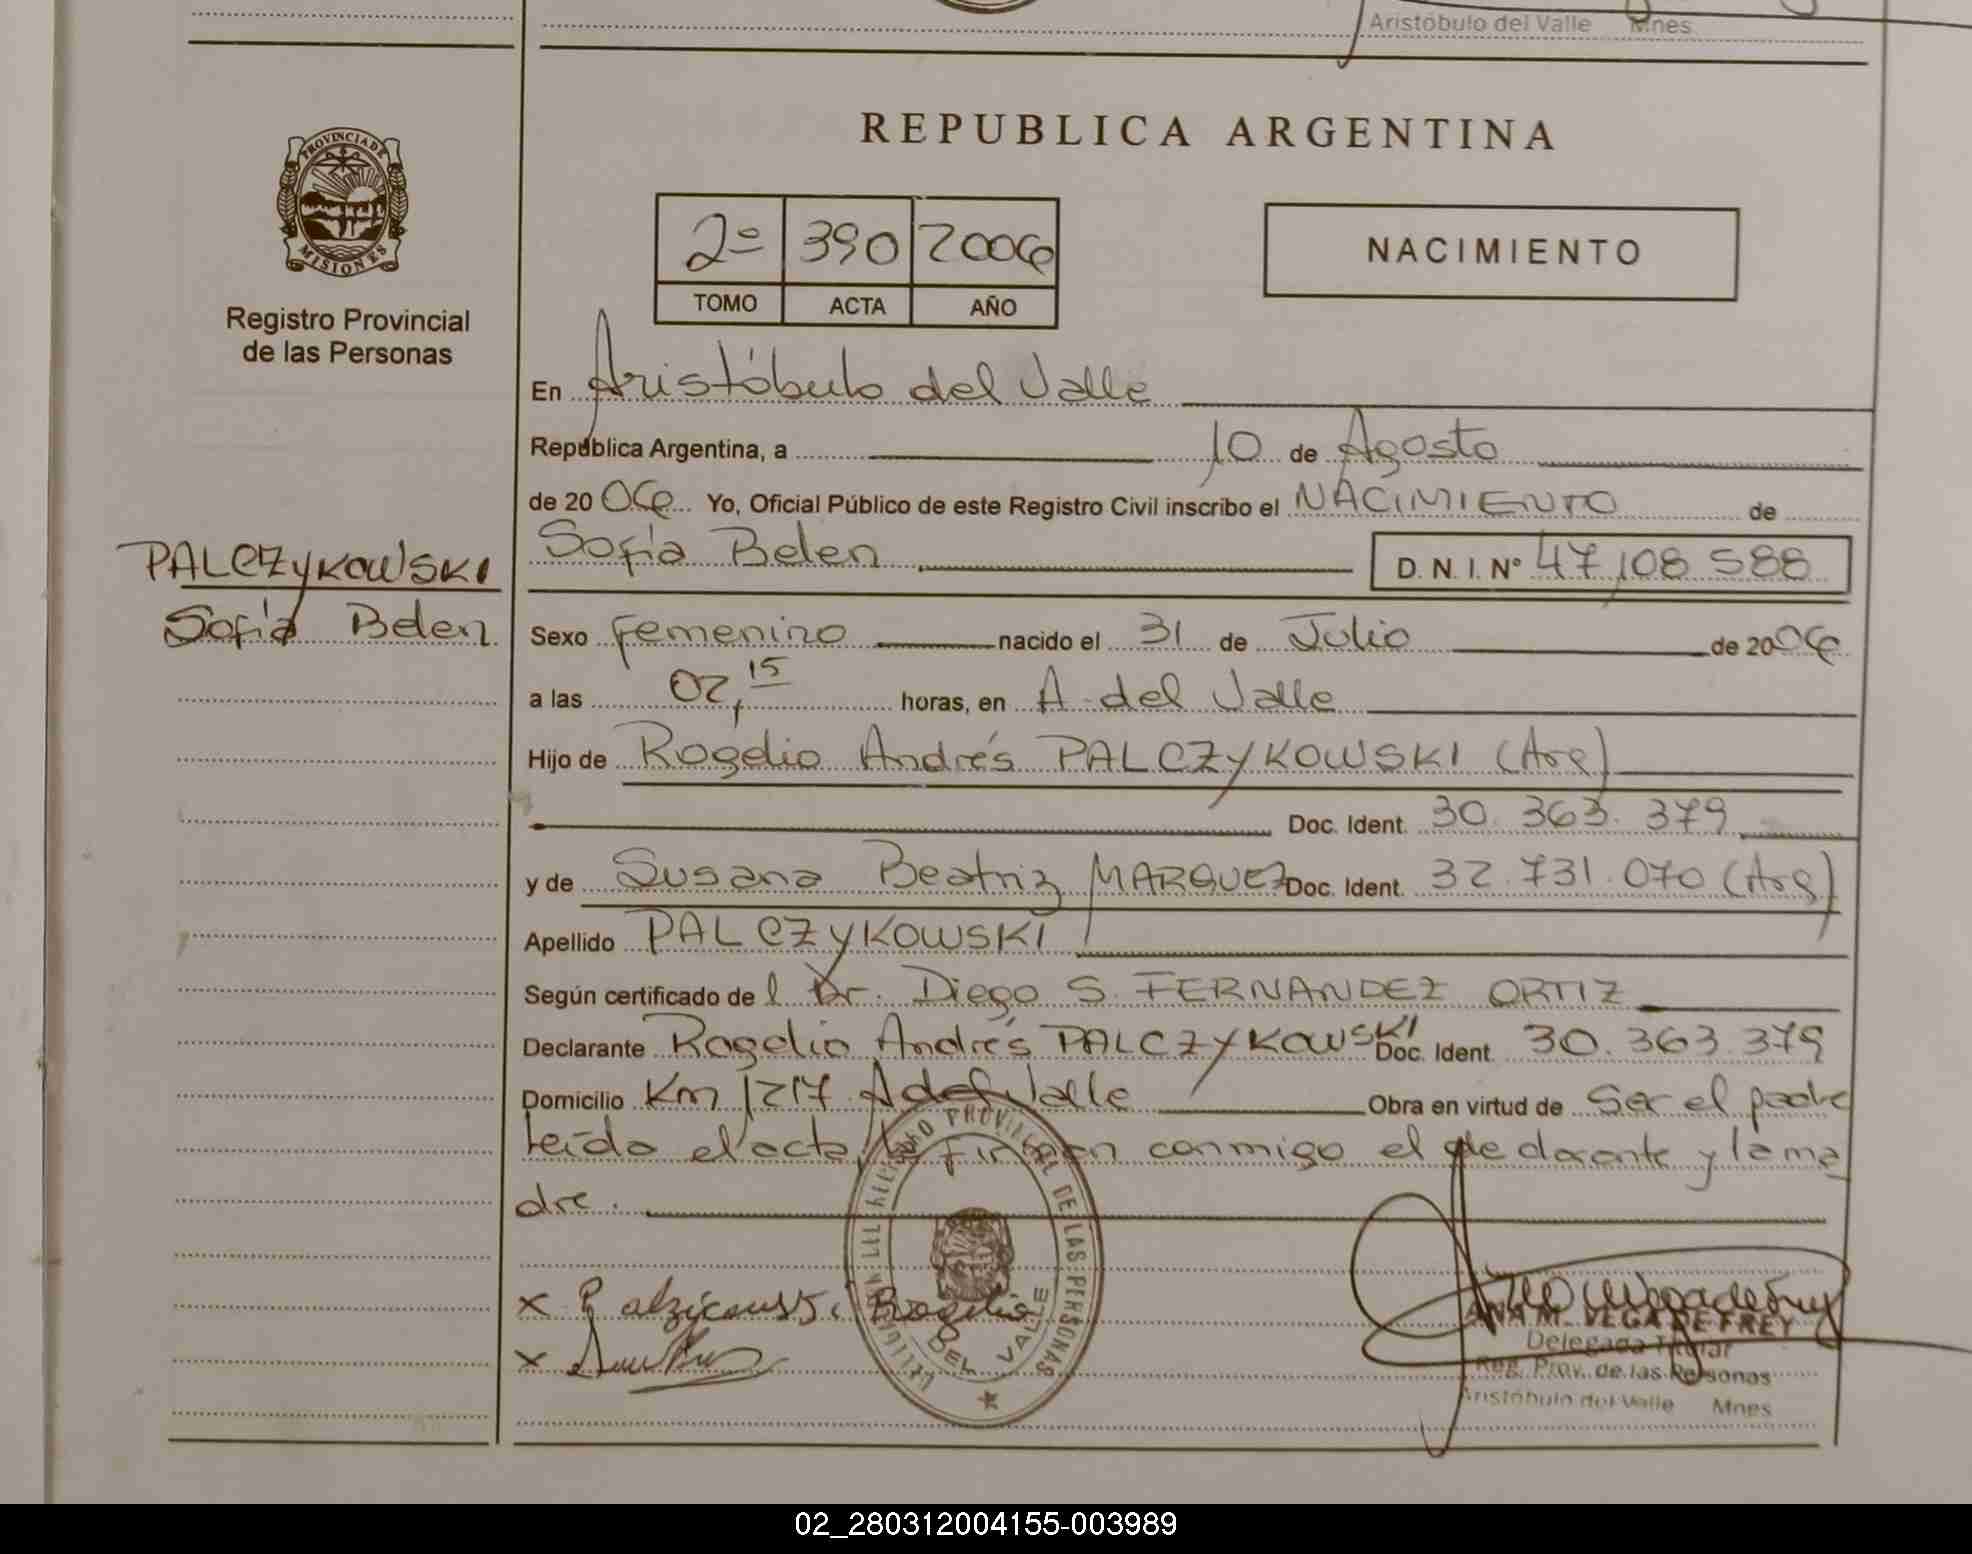 Aristóbulo del Valle Mnes
REPUBLICA ARGENTINA
PROVINCIA DE
MISIONES
Registro Provincial
de las Personas
2º 390 2006
TOMO ACTA AÑO
NACIMIENTO
En Aristóbulo del Valle
Republica Argentina, a 10 de Agosto
de 2006 Yo, Oficial Público de este Registro Civil inscribo el NACIMIENTO de
PALCZYKOWSKI
Sofía Belen
Sofía Belen D. N. I. Nº 47,108 588
Sexo femenino nacido el 31 de Julio de 2006
a las 02,15 horas, en A. del Valle
Hijo de Rogelio Andrés PALCZYKOWSKI (Arg)
Doc. Ident. 30. 363. 379
y de Susana Beatriz MARQUEZ Doc. Ident. 32.731.070 (Arg)
Apellido PALCZYKOWSKI
Según certificado del Dr. Diego S. FERNANDEZ ORTIZ
Declarante Rogelio Andrés PALCZYKOWSKI Doc. Ident. 30.363.379
Domicilio Km 1217 A del Valle Obra en virtud de Ser el padre
Leída el acta, la firman conmigo el declarante y la ma
dre.
REGISTRO PROVINCIAL DE LAS PERSONAS
DEL VALLE
x Rogelio
x
ANA M. VEGA DE FREY
Delegada Titular
Reg. Prov. de las Personas
Aristóbulo del Valle Mnes
02_280312004155-003989